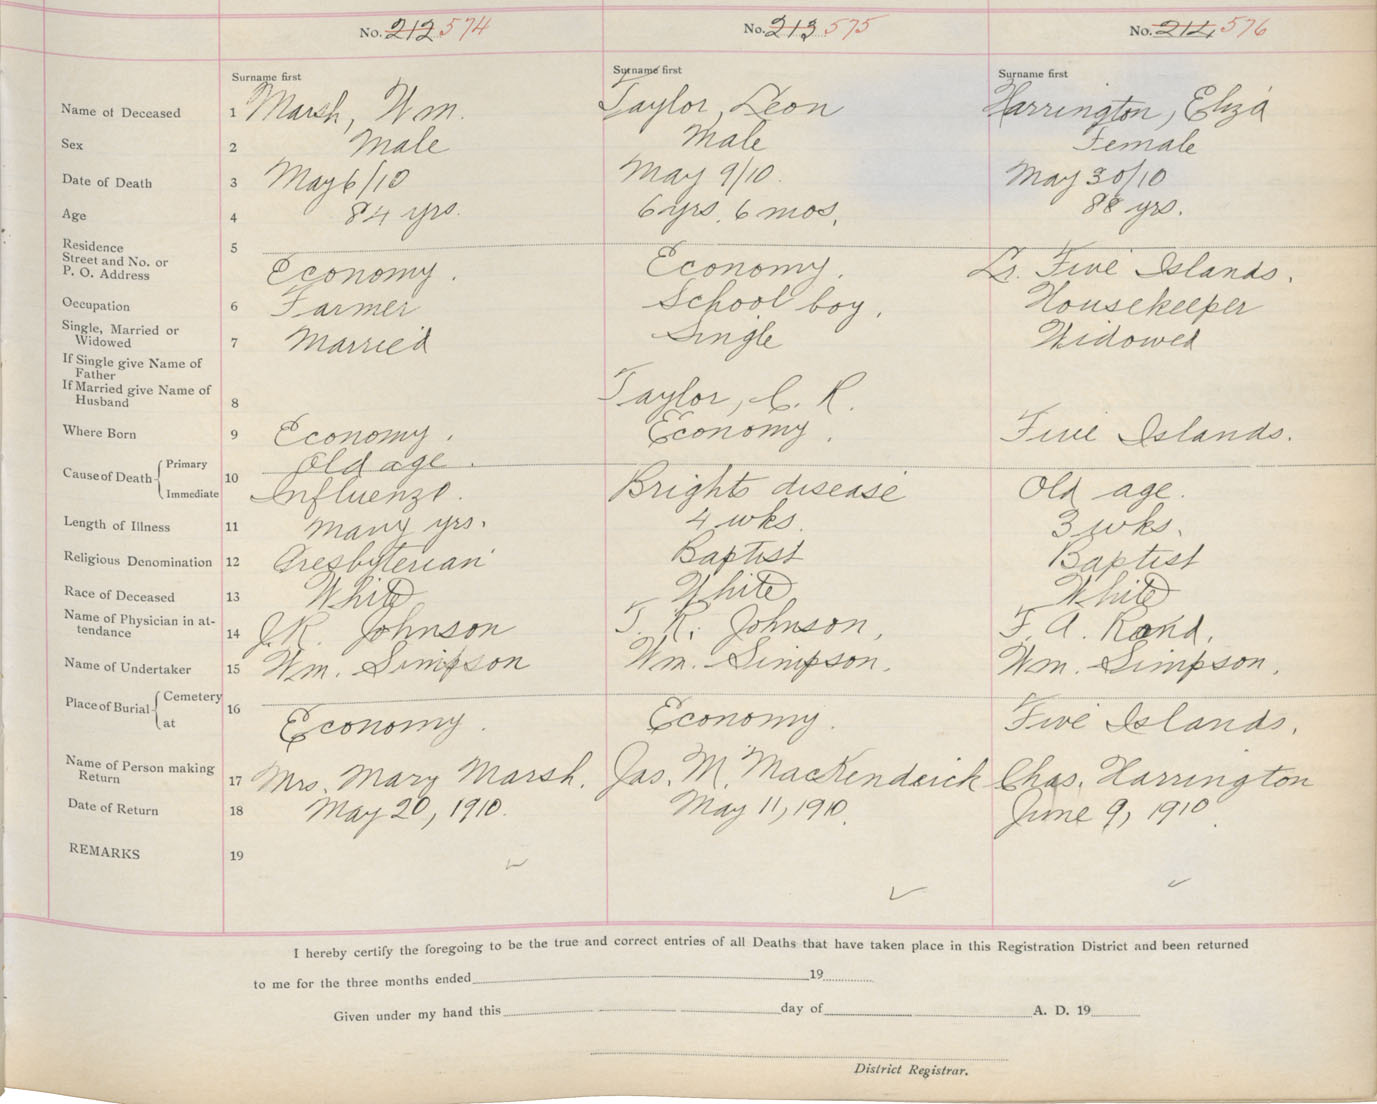 No. 212 574 No. 213 575 No. 214 576
Surname first Surname first Surname first
Name of Deceased 1 Marsh, Wm. Taylor, Leon Harrington, Eliza
Sex 2 Male Male Female
Date of Death 3 May 6/10 May 9/10. May 30/10
Age 4 84 yrs. 6 yrs. 6 mos. 88 yrs.
Residence 5
Street and No. or
P. O. Address Economy. Economy. Lr. Five Islands.
Occupation 6 Farmer School boy. Housekeeper
Single, Married or
Widowed 7 Married Single Widowed
If Single give Name of
Father
If Married give Name of
Husband 8 Taylor, C. R.
Where Born 9 Economy. Economy. Five Islands.
Cause of Death Primary 10 Old age.
Immediate Influenza. Brights disease Old age.
Length of Illness 11 many yrs. 4 wks. 3 wks.
Religious Denomination 12 Presbyterian Baptist Baptist
Race of Deceased 13 White White White
Name of Physician in at-
tendance 14 J. R. Johnson T. R. Johnson, F. A. Rand.
Name of Undertaker 15 Wm. Simpson Wm. Simpson. Wm. Simpson.
Place of Burial Cemetery 16
at Economy. Economy. Five Islands.
Name of Person making
Return 17 Mrs. Mary Marsh. Jas. M. MacKendrick Chas. Harrington
Date of Return 18 May 20, 1910. May 11, 1910. June 9, 1910.
REMARKS 19
I hereby certify the foregoing to be the true and correct entries of all Deaths that have taken place in this Registration District and been returned
to me for the three months ended 19
Given under my hand this day of A. D. 19
District Registrar.